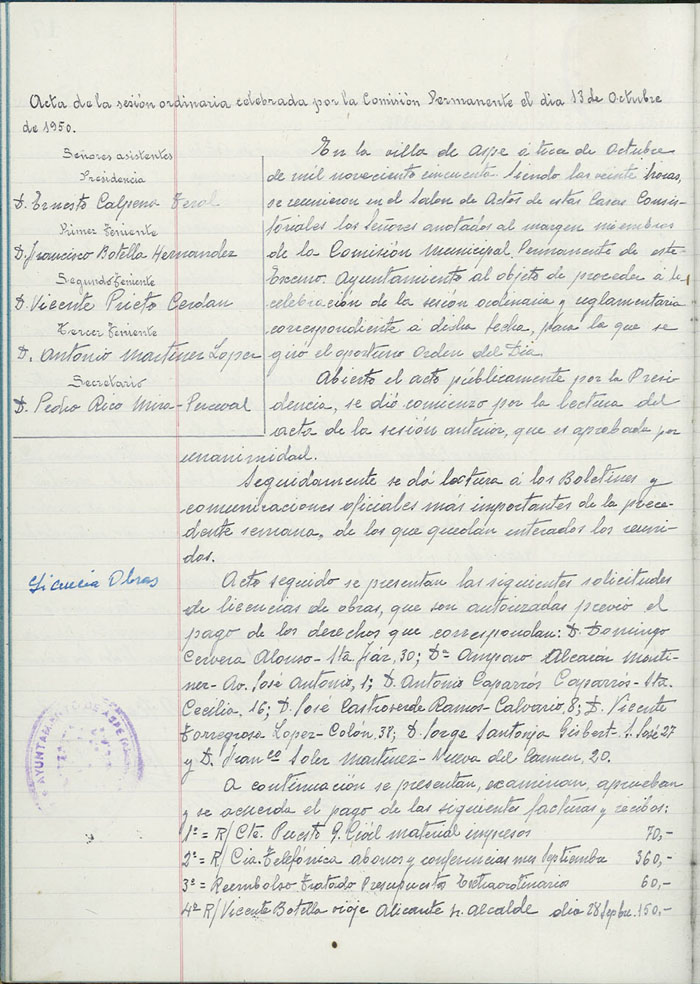 Acta de la sesión ordinaria celebrada por la Comisión Permanente el dia 13 de Octubre
de 1950.
Señores asistentes
Presidencia
D. Ernesto Calpena Ferol
Primer Teniente
D. Francisco Botella Hernandez
Segundo Teniente
D. Vicente Prieto Cerdan
Tercer Teniente
D. Antonio Martinez Lopez
Secretario
D. Pedro Rico Mira-Perceval
En la villa de Aspe á trece de Octubre
de mil noveciento cincuenta. Siendo las veinte horas,
se reunieron en el Salon de Actos de estas Casas Consis-
tóriales los señores anotados al margen miembros
de la Comisión Municipal Permanente de este
Excmo. Ayuntamiento al objeto de proceder á la
celebración de la sesión ordinaria y reglamentaria
correspondiente á dicha fecha, para la que se
giró el oportuno Orden del Dia.
Abierto el acto públicamente por la Presi-
dencia, se dió comienzo por la lectura del
acta de la sesión anterior, que es aprobada por
unanimidad.
Seguidamente se dá lectura á los Boletines y
comunicaciones oficiales más importantes de la prece-
dente semana, de los que quedan enterados los reuni-
dos.
Licencia Obras
Acto seguido se presentan las siguientes solicitudes
de licencias de obras, que son autorizadas previo el
pago de los derechos que correspondan: D. Domingo
Cervera Alonso-Sta. 30; Dª Amparo Alcaráz Marti-
nez-Av. José Antonio, 1; D. Antonio Caparrós Caparrós-Sta.
Cecilia, 16; D. José Castroverde Ramos-Calvario, 8; D. Vicente
Torregrosa Lopez-Colón, 38; D. Jorge Santonja Gisbert-S. José 27
y D. Franco Soler Martinez-Nueva del Carmen, 20.
AYUNTAMIENTO DE ASPE
A continuación se presentan, examinan, aprueban
y se acuerda el pago de las siguientes facturas y recibos:
1º = R/ Cta. Puesto G. Civil material impresos 70,-
2º = R/ Cia. Telefónica abonos y conferencias mes Septiembre 360,-
3º = Reembolso Tratado Presupuestos Extraordinarios 60,-
4º R/ Vicente Botella viaje Alicante Sr. Alcalde dia 28 Sepbre. 150,-